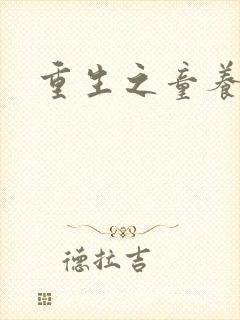 重生之童养
德拉吉